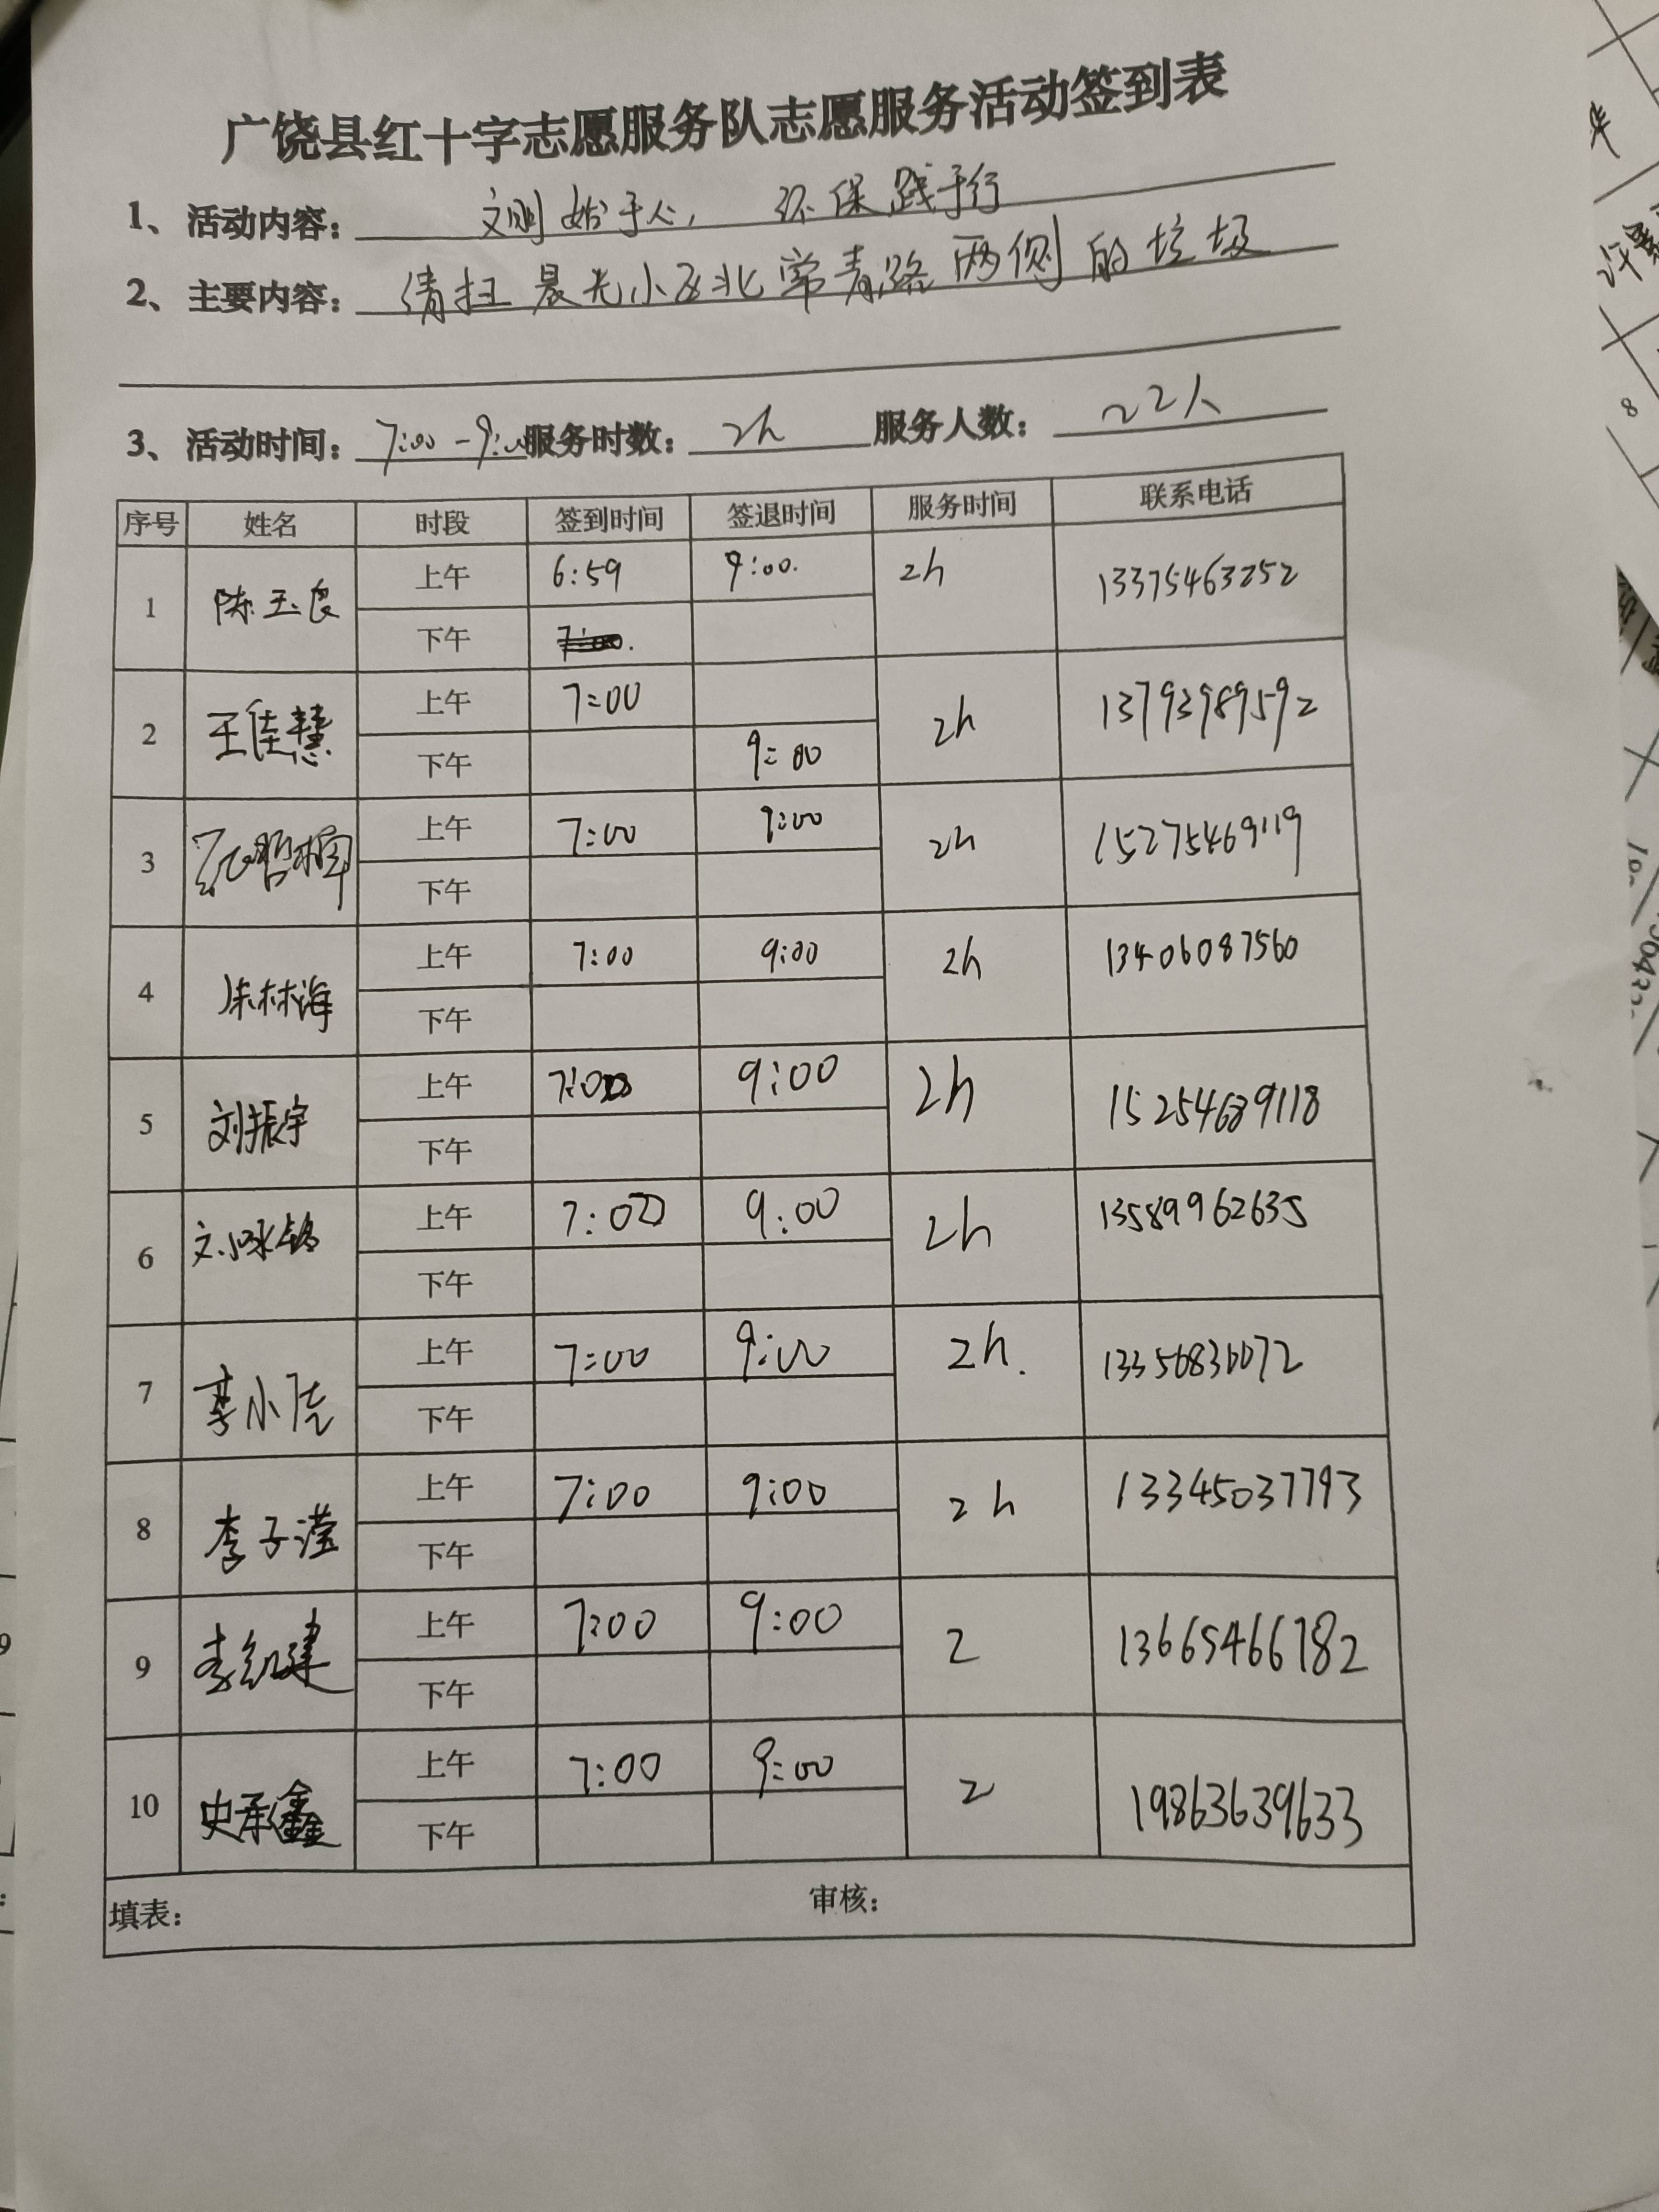 广饶县红十字志愿服务队志愿服务活动签到表
1、活动内容：文明始于心，环保践于行
2、主要内容：清扫晨光小区北常青路两侧的垃圾
3、活动时间：7:00-9:00 服务时数：2h 服务人数：22人
序号 姓名 时段 签到时间 签退时间 服务时间 联系电话
1 陈玉良 上午 6:59 9:00. 2h 13375463252
下午
2 王佳慧 上午 7:00 2h 13793989592
下午 9:00
3 上午 7:00 9:00 2h 15275469119
下午
4 朱林海 上午 7:00 9:00 2h 13406087560
下午
5 刘振宇 上午 7:00 9:00 2h 15254689118
下午
6 上午 7:00 9:00 2h 13589962635
下午
7 李小虎 上午 7:00 9:00 2h.
下午
8 李子滢 上午 7:00 9:00 2h 13345037793
下午
9 李红建 上午 7:00 9:00 2 13665466782
下午
10 史承鑫 上午 7:00 9:00 2 19863639633
下午
填表： 审核：